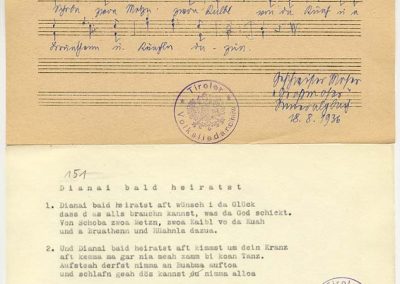 Schoba zwoa Metzn. zwoa Kalbl von da Kuah u a
Bruathenn u. Küachln da - zua.
Geschwister Moser
18.8.1936
Tiroler
Volksliedarchiv
151
Dianai bald heiratst
1. Dianai bald heiratst aft wünsch i da Glück
dass d as alls brauchn kannst, was da God schickt.
Von Schoba zwoa Metzn, zwoa Kaibl vo da Kuah
und a Bruathenn und KÜahnln dazua.
2. Und Dianai bald heiratst aft kimmst um dein Kranz
aft kemma ma gar nia meah zamm bi koan Tanz.
Aufsteah derfst nimma an Buabma auftoa
und schlafn geah dös kannst nimma alloa